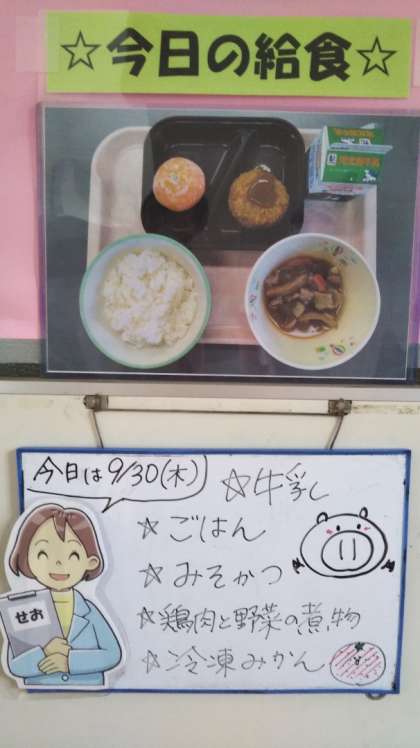 ☆今日の給食☆
今日は9/30(木)
☆牛乳
☆ごはん
☆みそかつ
☆鶏肉と野菜の煮物
☆冷凍みかん
せお